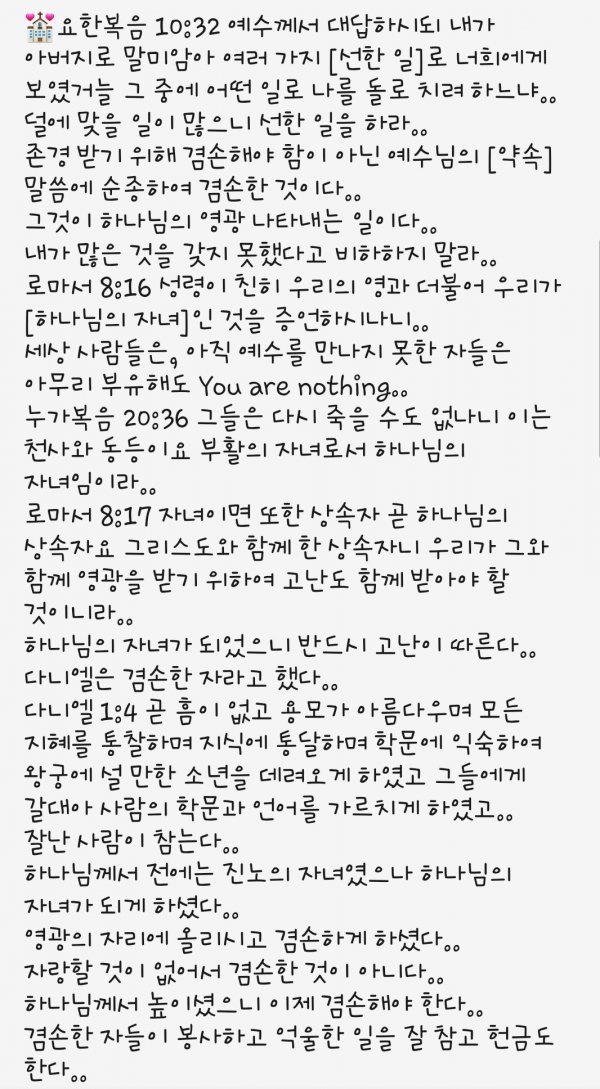 💒요한복음 10:32 예수께서 대답하시되 내가
아버지로 말미암아 여러 가지 [선한 일]로 너희에게
보였거늘 그 중에 어떤 일로 나를 돌로 치려 하느냐..
덜에 맞을 일이 많으니 선한 일을 하라..
존경 받기 위해 겸손해야 함이 아닌 예수님의 [약속]
말씀에 순종하여 겸손한 것이다..
그것이 하나님의 영광 나타내는 일이다..
내가 많은 것을 갖지 못했다고 비하하지 말라..
로마서 8:16 성령이 친히 우리의 영과 더불어 우리가
[하나님의 자녀]인 것을 증언하시나니..
세상 사람들은, 아직 예수를 만나지 못한 자들은
아무리 부유해도 You are nothing..
누가복음 20:36 그들은 다시 죽을 수도 없나니 이는
천사와 동등이요 부활의 자녀로서 하나님의
자녀임이라..
로마서 8:17 자녀이면 또한 상속자 곧 하나님의
상속자요 그리스도와 함께 한 상속자니 우리가 그와
함께 영광을 받기 위하여 고난도 함께 받아야 할
것이니라..
하나님의 자녀가 되었으니 반드시 고난이 따른다..
다니엘은 겸손한 자라고 했다..
다니엘 1:4 곧 흠이 없고 용모가 아름다우며 모든
지혜를 통찰하며 지식에 통달하며 학문에 익숙하여
왕궁에 설 만한 소년을 데려오게 하였고 그들에게
갈대아 사람의 학문과 언어를 가르치게 하였고..
잘난 사람이 참는다..
하나님께서 전에는 진노의 자녀였으나 하나님의
자녀가 되게 하셨다..
영광의 자리에 올리시고 겸손하게 하셨다..
자랑할 것이 없어서 겸손한 것이 아니다..
하나님께서 높이셨으니 이제 겸손해야 한다..
겸손한 자들이 봉사하고 억울한 일을 잘 참고 헌금도
한다..